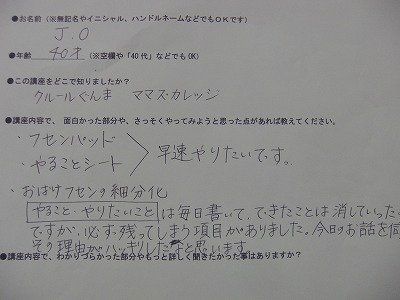 ●お名前（※無記名やイニシャル、ハンドルネームなどでもOKです）
J.O
●年齢 40才 （※空欄や「40代」などでもOK）
●この講座をどこで知りましたか？
クルールぐんま ママズ・カレッジ
●講座内容で、面白かった部分や、さっそくやってみようと思った点があれば教えてください。
・フセンパッド
・やることシート
早速やりたいです。
・おばけフセンの細分化
やること・やりたいこと は毎日書いて、できたことは消していった
ですが、必ず残ってしまう項目がありました。今日のお話を
その理由がハッキリしたなと思います
●講座内容で、わかりづらかった部分やもっと詳しく聞きたかった事はありますか？